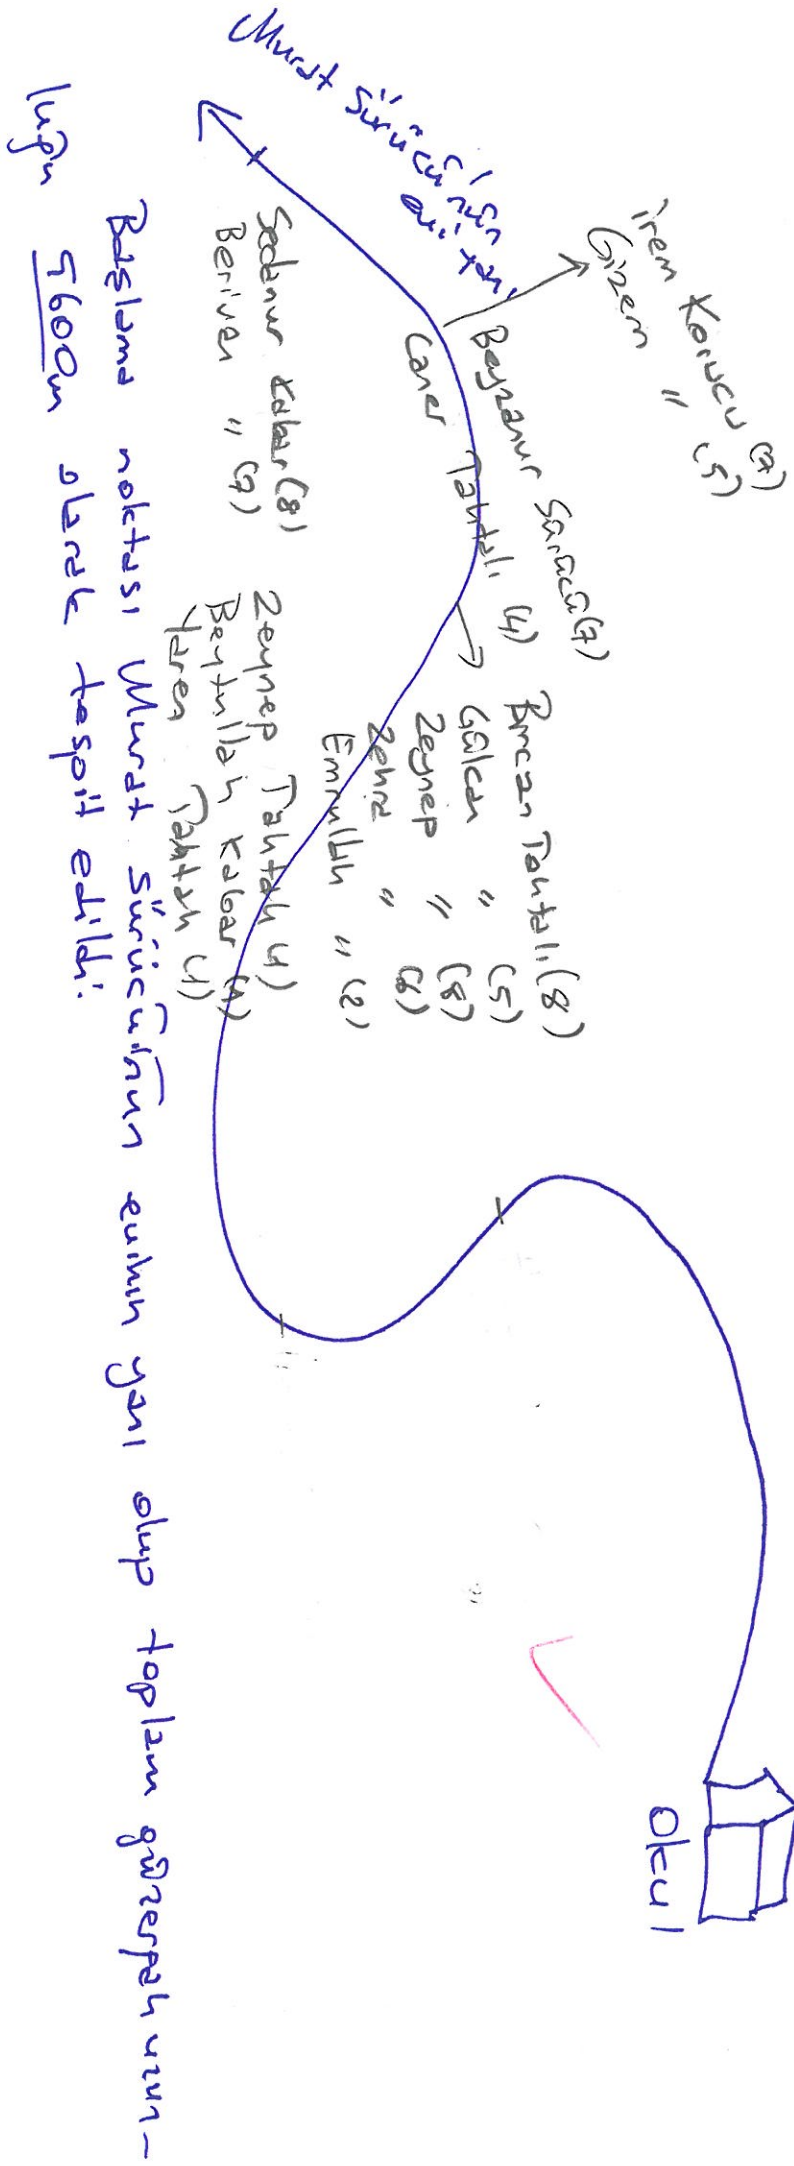 Murat Sürücü'nün
evi yanı
İrem Korucu (7)
Gizem " (5)
Beyzanur Sürücü (7)
Caner Tahtalı (4)
Bircan Tahtalı (8)
Gülcan " (5)
Zeynep " (8)
Zehra " (6)
Emrullah " (2)
Sedanur Kabar (8)
Berivan " (7)
Zeynep Tahtalı (4)
Beytullah Kabar (4)
Yaren Tahtalı (4)
Okul
Başlama noktası Murat Sürücü'nün evinin yanı olup toplam güzergah uzun-
luğu 5600m olarak tespit edildi.